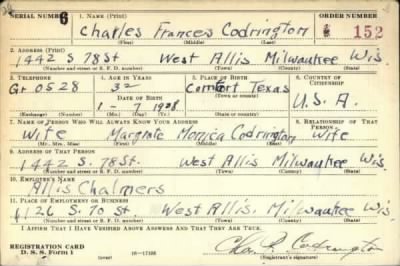 SERIAL NUMBER 1. NAME (Print) ORDER NUMBER
6 Charles Frances Codrington 152
(First) (Middle) (Last)
2. ADDRESS (Print)
1442 S 78 St West Allis Milwaukee Wis.
(Number and street or R. F. D. number) (Town) (County) (State)
3. TELEPHONE 4. AGE IN YEARS 5. PLACE OF BIRTH 6. COUNTRY OF CITIZENSHIP
Gr 0528 32 Comfort Texas
DATE OF BIRTH (Town or county) U.S.A.
1-7 1908
(Exchange) (Number) (Mo.) (Day) (Yr.) (State or country)
7. NAME OF PERSON WHO WILL ALWAYS KNOW YOUR ADDRESS 8. RELATIONSHIP OF THAT PERSON
Wife Monica Codrington Wife
(Mr., Mrs., Miss) (First) (Middle) (Last)
9. ADDRESS OF THAT PERSON
1442 S. 78 St. West Allis Milwaukee Wis
(Number and street or R. F. D. number) (Town) (County) (State)
10. EMPLOYER'S NAME
Allis Chalmers
11. PLACE OF EMPLOYMENT OR BUSINESS
1126 S. 70 St West Allis. Milwaukee Wis
(Number and street or R. F. D. number) (Town) (County) (State)
I AFFIRM THAT I HAVE VERIFIED ABOVE ANSWERS AND THAT THEY ARE TRUE.
REGISTRATION CARD
D. S. S. Form 1 (over) Codrington
(Registrant's signature)